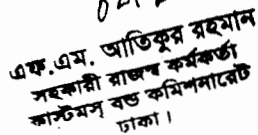 এফ.এম. আতিকুর রহমান
সহকারী রাজস্ব কর্মকর্তা
কাস্টমস্ বন্ড কমিশনারেট
ঢাকা।